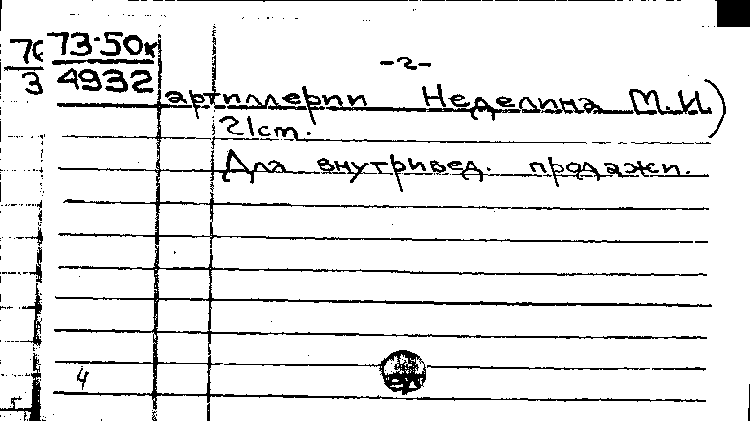 73-50к
4932
-2-
артиллерии Неделина М.И.)
21ст.
Для внутривед. продажи.
4